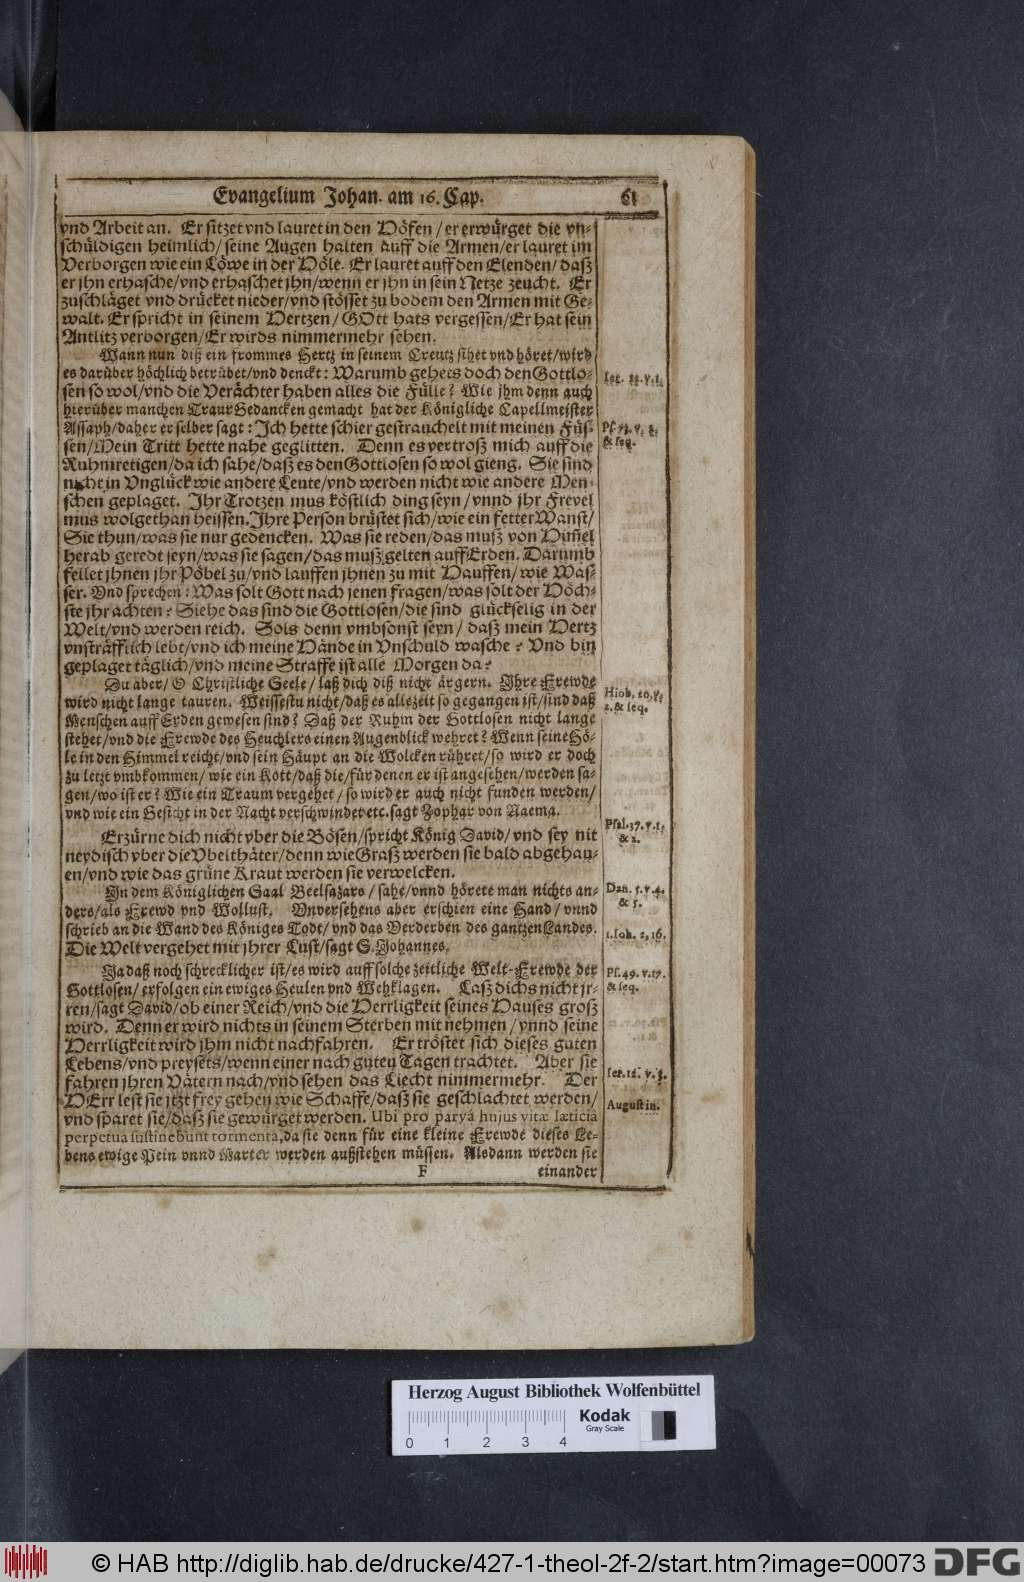 Evangelium Johan. am 16. Cap. 61
vnd Arbeit an. Er sitzet vnd lauret in den Höfen / er erwürget die vn-
schüldigen heimlich / seine Augen halten auff die Armen / er lauret im
Verborgen wie ein Löwe in der Höle. Er lauret auff den Elenden / daß
er jhn erhasche / vnd erhaschet jhn / wenn er jhn in sein Netze zeucht. Er
zuschläget vnd drücket nieder / vnd stösset zu bodem den Armen mit Ge-
walt. Er spricht in seinem Hertzen / GOtt hats vergessen / Er hat sein
Antlitz verborgen / Er wirds nimmermehr sehen.
Wann nun diß ein frommes Hertz in seinem Creutz sihet vnd höret / wird
es darüber höchlich betrübet / vnd denckt: Warumb gehets doch den Gottlo-
sen so wol / vnd die Verächter haben alles die Fülle? Wie jhm denn auch
hierüber manchen Traur Gedancken gemacht hat der Königliche Capellmeister
Assaph / daher er selber sagt: Ich hette schier gestrauchelt mit meinen Füs-
sen / Mein Tritt hette nahe geglitten. Denn es verdroß mich auff die
Ruhmretigen / da ich sahe / daß es den Gottlosen so wol gieng. Sie sind
nicht in Vnglück wie andere Leute / vnd werden nicht wie andere Men-
schen geplaget. Ihr Trotzen mus köstlich ding seyn / vnnd jhr Frevel
mus wolgethan heissen. Ihre Person brüstet sich / wie ein fetter Wanst /
Sie thun / was sie nur gedencken. Was sie reden / das muß von Himel
herab geredt seyn / was sie sagen / das muß gelten auff Erden. Darumb
fellet jhnen jhr Pöbel zu / vnd lauffen jhnen zu mit Hauffen / wie Was-
ser. Vnd sprechen: Was solt Gott nach jenen fragen / was solt der Höch-
ste jhr achten? Siehe das sind die Gottlosen / die sind glückselig in der
Welt / vnd werden reich. Sols denn vmbsonst seyn / daß mein Hertz
vnsträfflich lebt / vnd ich meine Hände in Vnschuld wasche? Vnd bin
geplaget täglich / vnd meine Straffe ist alle Morgen da?
Du aber / O Christliche Seele / laß dich diß nicht ärgern. Ihre Frewde
wird nicht lange tauren. Weissestu nicht / daß es allezeit so gegangen ist / sind daß
Menschen auff Erden gewesen sind? Daß der Ruhm der Gottlosen nicht lange
stehet / vnd die Frewde des Heuchlers einen Augenblick wehret? Wenn seine Hö-
le in den Himmel reicht / vnd sein Häupt an die Wolcken rühret / so wird er doch
zu letzt vmbkommen / wie ein Kott / daß die / für denen er ist angesehen / werden sa-
gen / wo ist er? Wie ein Traum vergehet / so wird er auch nicht funden werden /
vnd wie ein Gesicht in der Nacht verschwindet etc. sagt Zophar von Naema.
Erzürne dich nicht vber die Bösen / spricht König David / vnd sey nit
neydisch vber die Vbelthäter / denn wie Graß werden sie bald abgehau-
en / vnd wie das grüne Kraut werden sie verwelcken.
In dem Königlichen Saal Beelsazars / sahe / vnnd hörete man nichts an-
ders / als Frewd vnd Wollust. Vnversehens aber erschien eine Hand / vnnd
schrieb an die Wand des Königes Todt / vnd das Verderben des gantzen Landes.
Die Welt vergehet mit jhrer Lust / sagt S. Johannes.
Ja daß noch schrecklicher ist / es wird auff solche zeitliche Welt-Frewde der
Gottlosen / erfolgen ein ewiges Heulen vnd Wehklagen. Laß dichs nicht jr-
ren / sagt David / ob einer Reich / vnd die Herrligkeit seines Hauses groß
wird. Denn er wird nichts in seinem Sterben mit nehmen / vnnd seine
Herrligkeit wird jhm nicht nachfahren. Er tröstet sich dieses guten
Lebens / vnd preysets / wenn einer nach guten Tagen trachtet. Aber sie
fahren jhren Vätern nach / vnd sehen das Liecht nimmermehr. Der
HErr lest sie jtzt frey gehen wie Schaffe / daß sie geschlachtet werden /
vnd sparet sie / daß sie gewürget werden. Ubi pro parvâ hujus vitæ lætitiâ
perpetua sustinebunt tormenta, da sie denn für eine kleine Frewde dieses Le-
bens ewige Pein vnnd Marter werden außstehen müssen. Alsdann werden sie
F einander
Ps. 73. v. 2.
& seq.
Hiob. 20. v.
2. & seq.
Psal. 37. v. 1.
& 2.
Dan. 5. v. 4.
& 5.
1. Joh. 2, 16.
Ps. 49. v. 17.
& seq.
Jer. 12. v. 3.
Augustin.
Herzog August Bibliothek Wolfenbüttel
Kodak
Gray Scale
0 1 2 3 4
© HAB http://diglib.hab.de/drucke/427-1-theol-2f-2/start.htm?image=00073
DFG